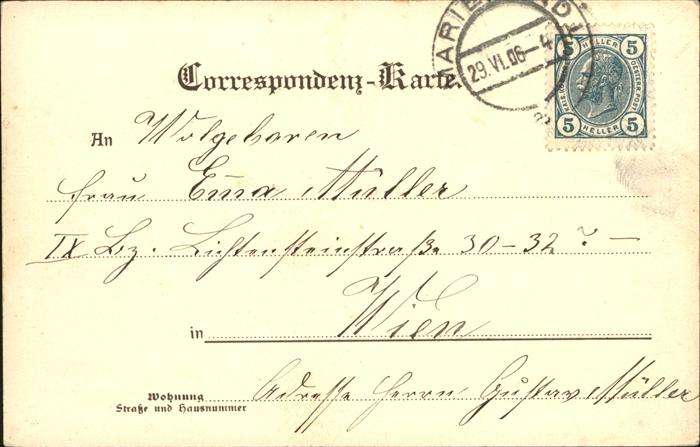 29.VI.06-4
5 HELLER 5
5 HELLER 5
Correspondenz-Karte.
An Wolgeboren
Frau Ema Müller
IX Bz. Lichtensteinstraße 30-32 ? —
in Wien
Wohnung
Straße und Hausnummer
Adresse Herrn Gustav Müller